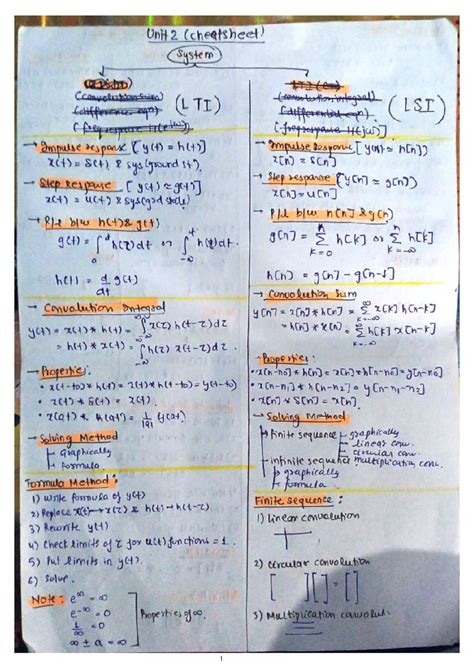 Unit 2 (cheatsheet)
System
(convolution sum)
(difference eqn)
(freq response H(e^jω))
(LTI)
→ Impulse response [y(t) = h(t)]
x(t) = δ(t) & sys(ground st).
→ Step Response [y(t) = g(t)]
x(t) = u(t) & sys(grd state)
→ R/l b/w h(t) & g(t)
g(t) = ∫₀ᵗ h(τ)dτ or ∫₋∞ᵗ h(τ)dτ.
h(t) = d/dt g(t)
→ Convolution Integral
y(t) = x(t) * h(t) = ∫₋∞^∞ x(τ) h(t-τ)dτ
= h(t) * x(t) = ∫₋∞^∞ h(τ) x(t-τ)dτ.
→ Properties:
• x(t-t0) * h(t) = x(t) * h(t-t0) = y(t-t0)
• x(t) * δ(t) = x(t)
• x(at) * h(at) = 1/|a| y(at)
→ Solving Method
graphically
formula
Formula Method:
1) Write formula of y(t)
2) Replace x(t)→x(τ) & h(t)→h(t-τ)
3) Rewrite y(t)
4) Check limits of τ for u(t) functions = 1.
5) Put limits in y(t).
6) Solve.
Note: e^∞ = ∞
e^-∞ = 0
1/∞ = 0
∞ ± a = ∞
Properties of ∞.
(convolution integral)
(differential eqn)
(freq response H(jω))
(LSI)
→ Impulse Response [y[n] = h[n]]
x[n] = δ[n]
→ Step response [y[n] = g[n]]
x[n] = u[n]
→ R/l b/w h[n] & g[n]
g[n] = Σ_{k=0}^{n} h[k] or Σ_{k=-∞}^{n} h[k]
h[n] = g[n] - g[n-1]
→ Convolution Sum
y[n] = x[n] * h[n] = Σ_{k=-∞}^{∞} x[k] h[n-k]
= h[n] * x[n] = Σ_{k=-∞}^{∞} h[k] x[n-k]
→ Properties:
• x[n-n0] * h[n] = x[n] * h[n-n0] = y[n-n0]
• x[n-n1] * h[n-n2] = y[n-n1-n2]
• x[n] * δ[n] = x[n].
→ Solving Method
Finite sequence
graphically
linear conv.
circular conv.
multiplication conv.
infinite sequence
graphically
formula
Finite sequence:
1) linear convolution
2) circular convolution
[ ] [ ] = [ ]
3) Multiplication convolut.
1